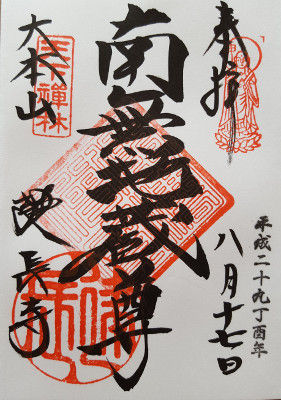 奉拝
平成二十九丁酉年
八月十七日
南無地蔵尊
天下禅林
大本山
建長寺